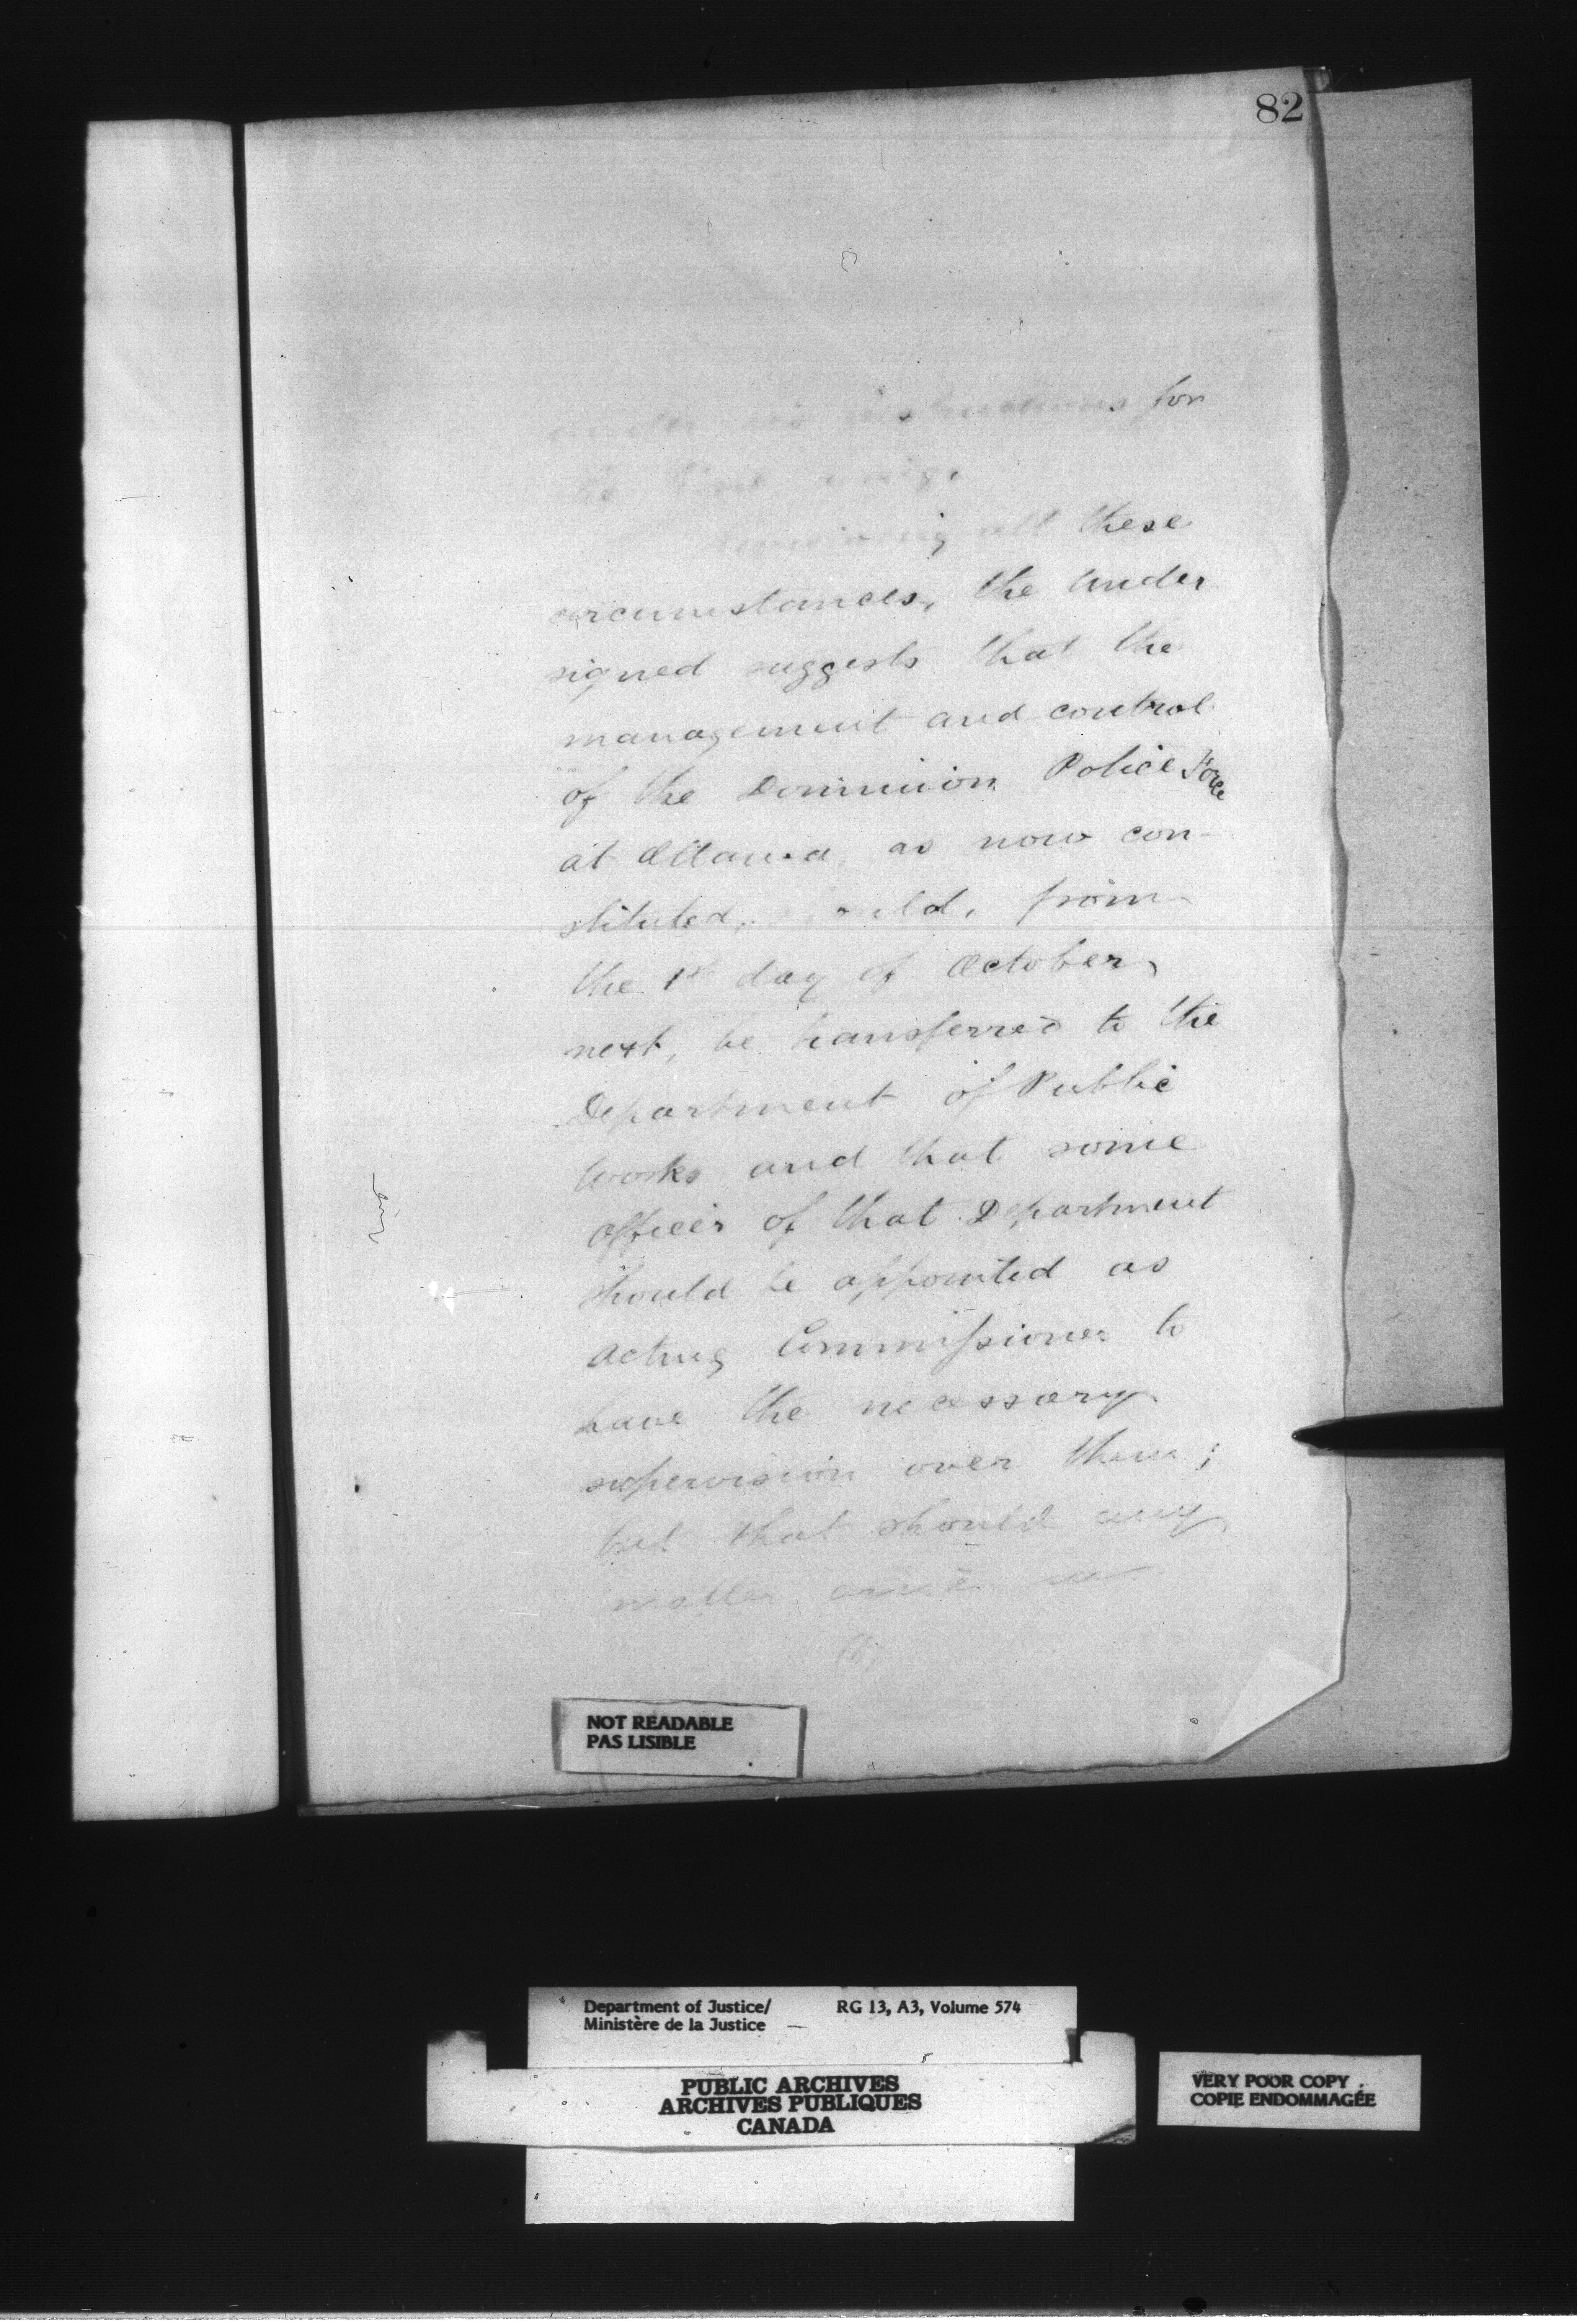 82
under his instructions for
all these
circumstances, the Under
signed suggests that the
management and control
of the Dominion Police Force
at Ottawa, as now con-
stituted, from
the 1st day of October,
next, be transferred to the
Department of Public
Works and that some
officer of that Department
should be appointed as
Acting Commissioner to
have the necessary
supervision over them;
but that should any
matter arise
NOT READABLE
PAS LISIBLE
Department of Justice/ RG 13, A3, Volume 574
Ministère de la Justice
PUBLIC ARCHIVES
ARCHIVES PUBLIQUES
CANADA
VERY POOR COPY
COPIE ENDOMMAGÉE